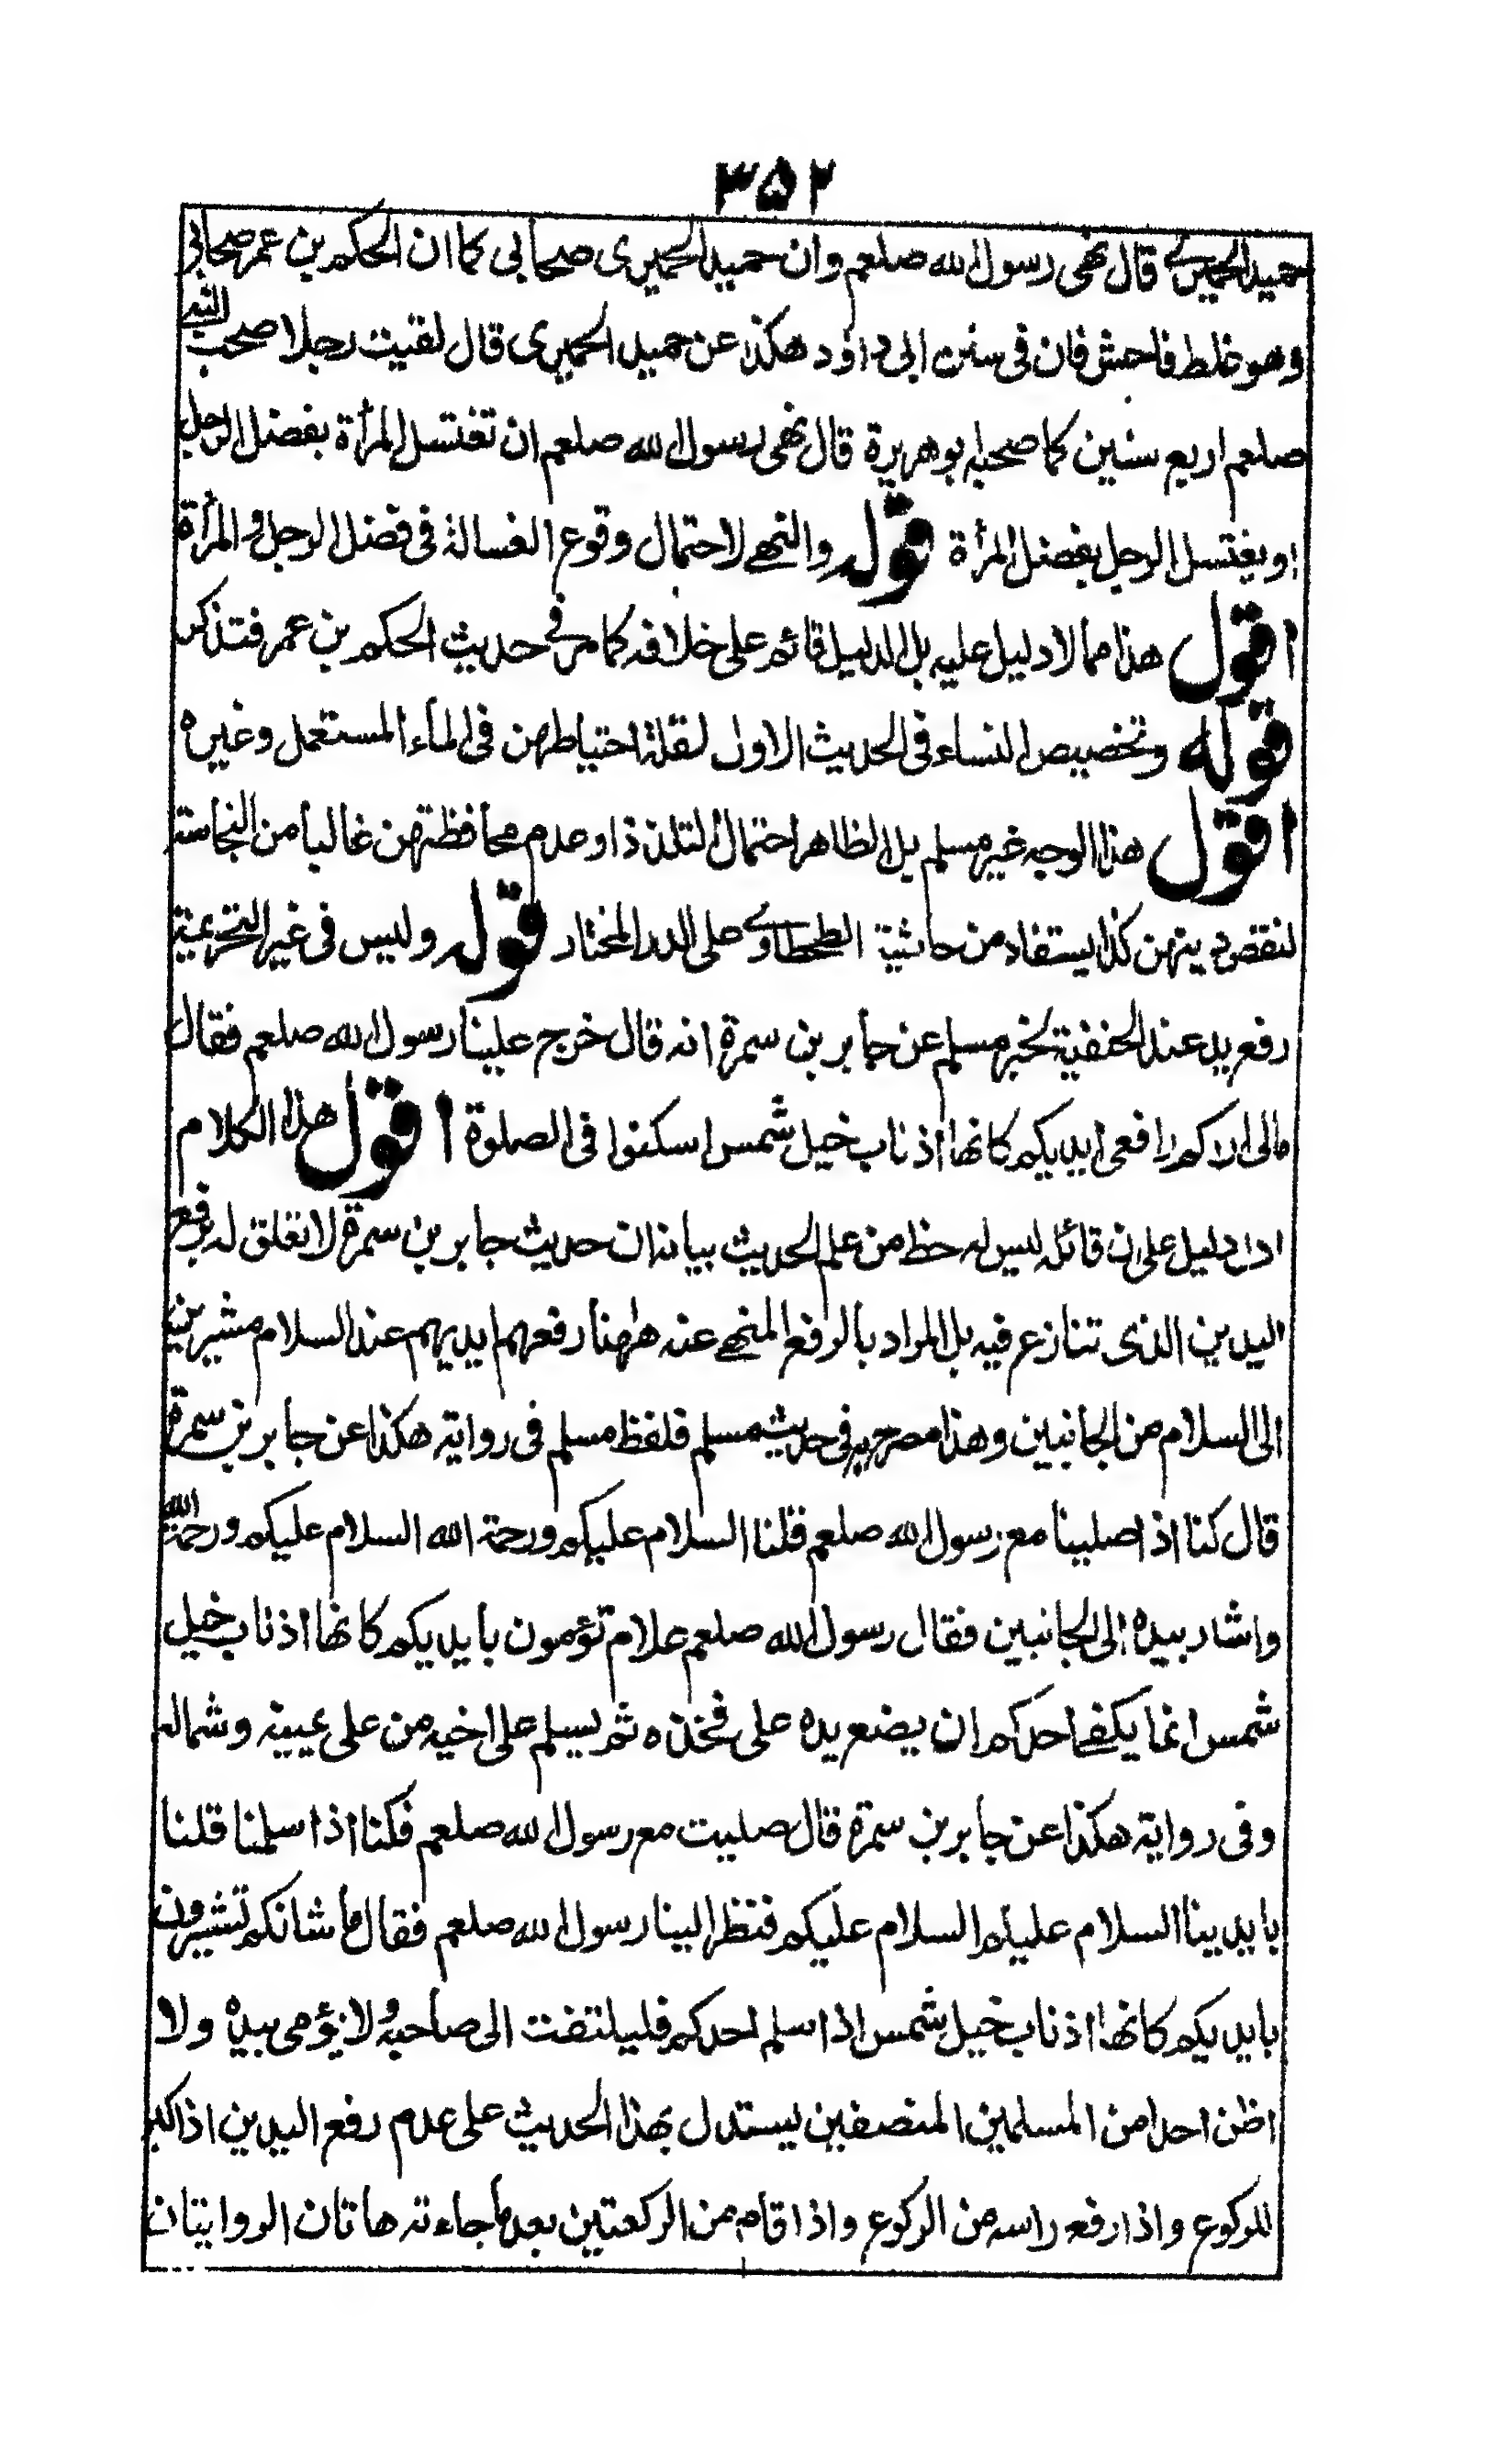 ۳۵۲
حميد الحميرى قال نهى رسول الله صلعم وان حميد الحميرى صحابى كما ان الحكم بن عمر صحابى
وهو غلط فاحش فان فى سنن ابى داؤد هكذا عن حميد الحميرى قال لقيت رجلا صحب النبى
صلعم اربع سنين كما صحبه ابو هريرة قال نهى رسول الله صلعم ان تغتسل المرأة بفضل الرجل
او يغتسل الرجل بفضل المرأة قوله والنهى لاحتمال وقوع الغسالة فى فضل الرجل والمرأة
اقول هذا مما لا دليل عليه بل الدليل قائم على خلافه كما مر فى حديث الحكم بن عمر فتذكر
قوله وتخصيص النساء فى الحديث الاول لقلة احتياطهن فى الماء المستعمل وغيره
اقول هذا الوجه غير مسلم بل الظاهر احتمال التلذذ او عدم محافظتهن غالبا من النجاسة
لنقص دينهن كذا يستفاد من حاشية الطحطاوى على الدر المختار قوله وليس فى غير التحريمة
رفع يد عند الحنفية لخبر مسلم عن جابر بن سمرة انه قال خرج علينا رسول الله صلعم فقال
مالى اراكم رافعى ايديكم كانها اذناب خيل شمس اسكنوا فى الصلوة اقول هذا الكلام
ادل دليل على ان قائله ليس له حظ من علم الحديث بيانه ان حديث جابر بن سمرة لا تعلق له برفع
اليدين الذى تنازع فيه بل المراد بالرفع المنهى عنه ههنا رفعهم ايديهم عند السلام مشيرين
الى السلام من الجانبين وهذا مصرح به فى حديث مسلم فلفظ مسلم فى رواية هكذا عن جابر بن سمرة
قال كنا اذا صلينا مع رسول الله صلعم قلنا السلام عليكم ورحمة الله السلام عليكم ورحمة الله
واشار بيده الى الجانبين فقال رسول الله صلعم علام تؤمون بايديكم كانها اذناب خيل
شمس انما يكفى احدكم ان يضع يده على فخذه ثم يسلم على اخيه من على يمينه وشماله
وفى رواية هكذا عن جابر بن سمرة قال صليت مع رسول الله صلعم فكنا اذا سلمنا قلنا
بايدينا السلام عليكم السلام عليكم فنظر الينا رسول الله صلعم فقال ما شانكم تشيرون
بايديكم كانها اذناب خيل شمس اذا سلم احدكم فليلتفت الى صاحبه ولا يؤمى بيده ولا
اظن احدا من المسلمين المنصفين يستدل بهذا الحديث على عدم رفع اليدين اذا كبر
للركوع واذا رفع راسه من الركوع واذا قام من الركعتين بعد ما جاءته هاتان الروايتان